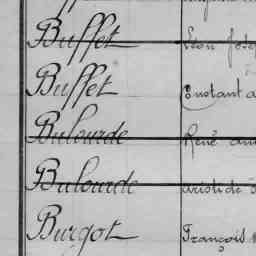 Buffet Léon Jose
Buffet Constant a
Bulourde René
Bulourde aristide
Burgot François